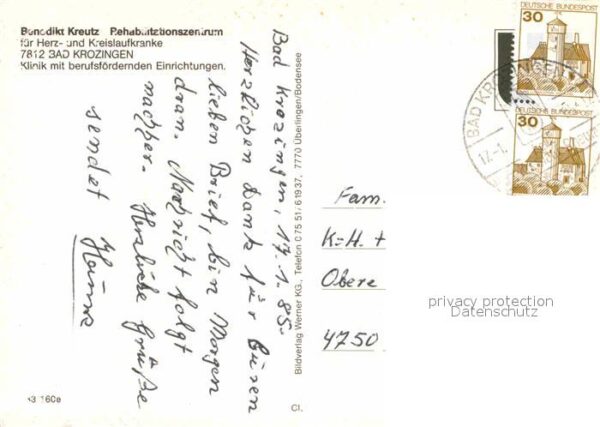 Benedikt Kreutz Rehabilitationszentrum
für Herz- und Kreislaufkranke
7812 BAD KROZINGEN
Klinik mit berufsfördernden Einrichtungen.
Bad Krozingen, 17.1.85.
Herzlichen Dank für Euren
lieben Brief, bin Morgen
dran. Nachricht folgt
nachher. Herzliche Grüße
sendet
Bildverlag Werner KG., Telefon 0 75 51 / 61937, 7770 Überlingen/Bodensee
DEUTSCHE BUNDESPOST
30
DEUTSCHE BUNDESPOST
30
BAD KROZINGEN
17.-1.
Fam.
K-H. +
Obere
4750
privacy protection
Datenschutz
CI.